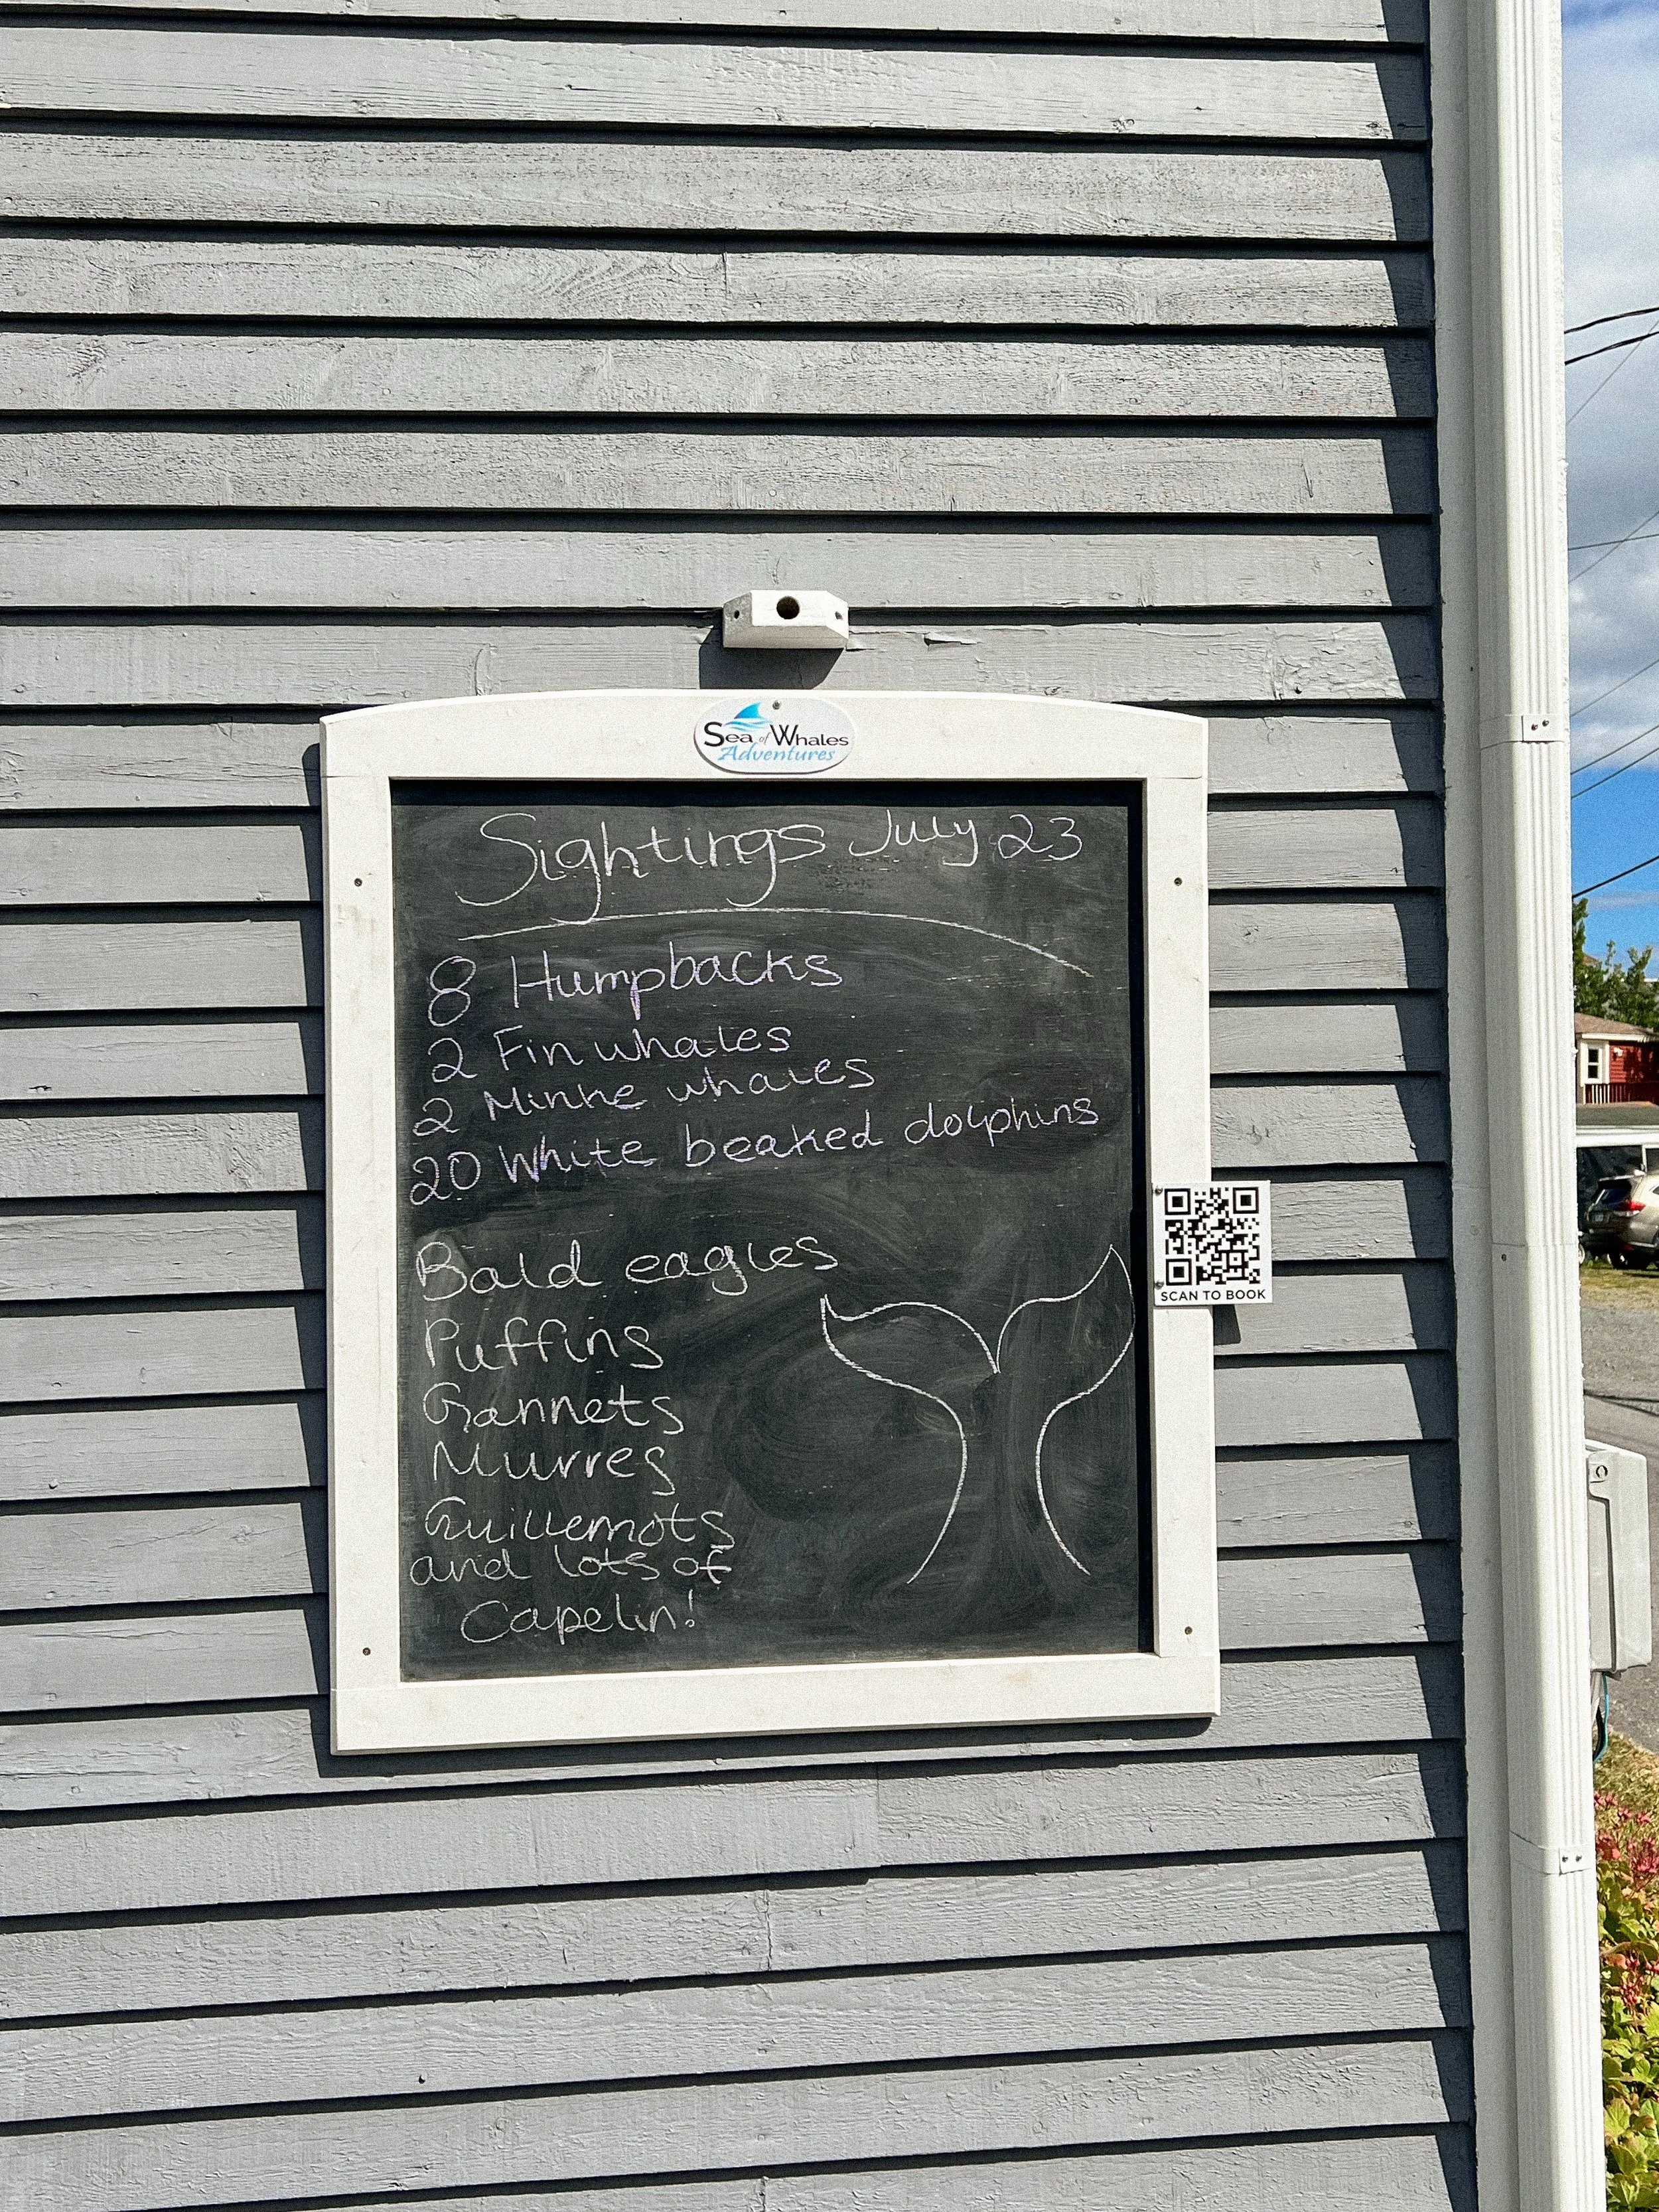 Sea of Whales
Adventures
Sightings July 23
8 Humpbacks
2 Fin whales
2 Minke whales
20 White beaked dolphins
Bald eagles
Puffins
Gannets
Murres
Guillemots
and lots of
Capelin!
SCAN TO BOOK